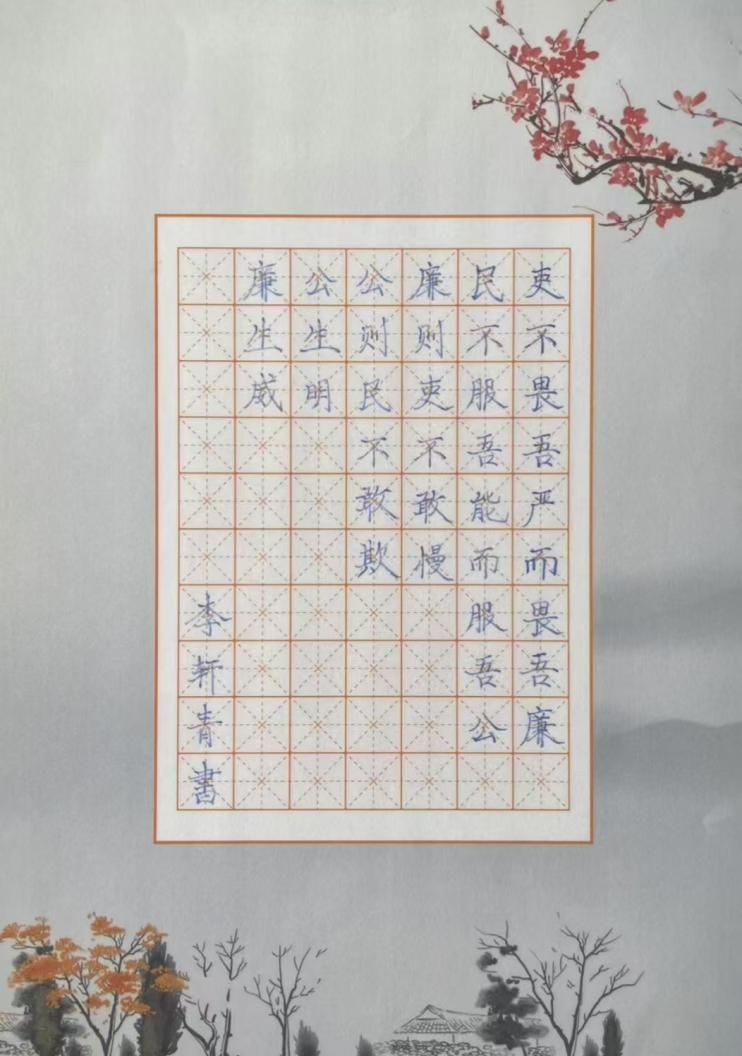 吏不畏吾严而畏吾廉
民不服吾能而服吾公
廉则吏不敢慢
公则民不敢欺
公生明
廉生威
李轩青書